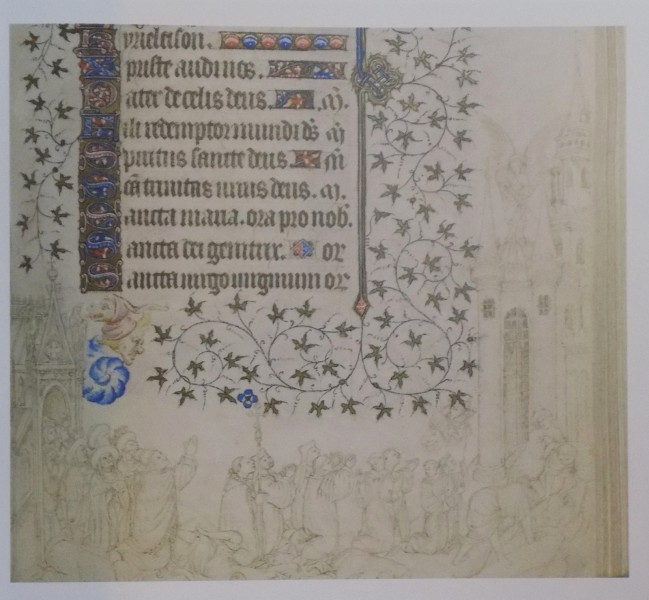 Kyrieleison.
Xpiste audi nos.
Pater de celis deus. m̄.
Fili redemptor mundi ds̄ m̄
Spiritus sancte deus. m̄
Sc̄a trinitas unus deus. m̄.
Sancta maria. ora pro nob̄.
Sancta dei genitrix. or
Sancta virgo virginum or